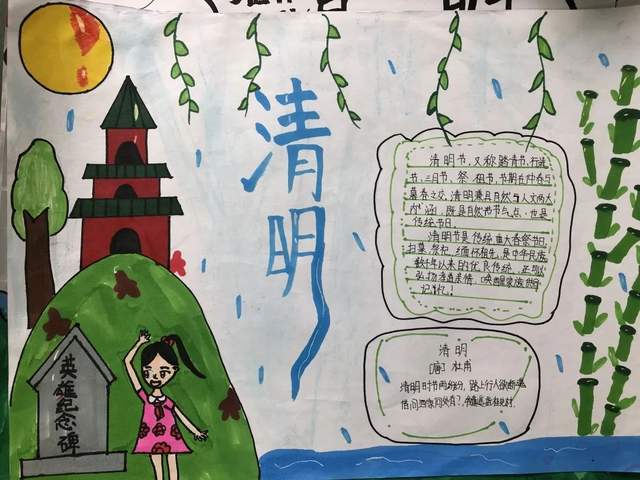 清明
清明节,又称踏青节、行清
节、三月节、祭祖节,节期在仲春与
暮春之交。清明兼具自然与人文两大
内涵,既是自然节气点,也是
传统节日。
清明节是传统重大春祭节日,
扫墓祭祀、缅怀祖先,是中华民族
数千年以来的优良传统,
弘扬孝道亲情、唤醒家族共同
记忆。
清明
[唐] 杜甫
清明时节雨纷纷,路上行人欲断魂
借问酒家何处有?
英雄纪念碑